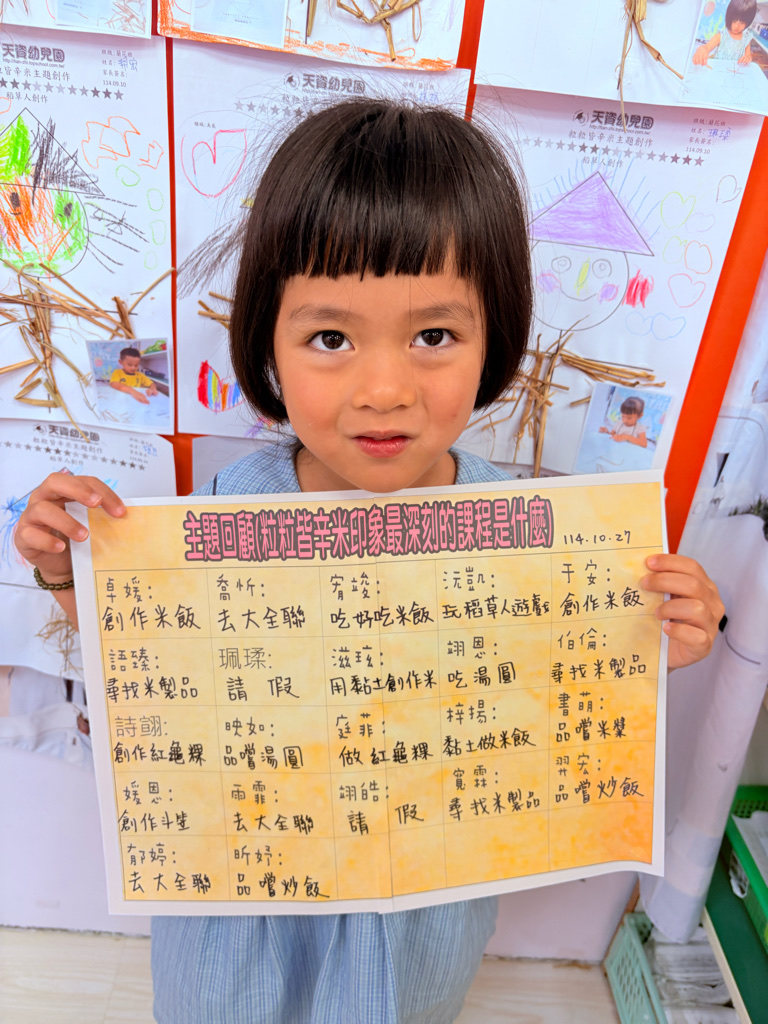 天資幼兒園
粒粒皆辛米主題創作
114.09.10
稻草人創作
天資幼兒園
天資幼兒園
粒粒皆辛米主題創作
114.09.10
稻草人創作
天資幼兒園
主題回顧(粒粒皆辛米印象最深刻的課程是什麼)
114.10.27
卓媛:
創作米飯
喬忻:
去大全聯
宥竣:
吃好吃米飯
沅凱:
玩稻草人遊戲
于安:
創作米飯
語臻:
尋找米製品
珮瑈:
請 假
滋玹:
用黏土創作米
翊恩:
吃湯圓
伯倫:
尋找米製品
詩翮:
創作紅龜粿
映如:
品嚐湯圓
庭菲:
做紅龜粿
梓揚:
黏土做米飯
書萌:
品嚐米漿
媛恩:
創作斗笠
雨霏:
去大全聯
翊皓:
請 假
寬霖:
尋找米製品
羿宏:
品嚐炒飯
郁婷:
去大全聯
昕妤:
品嚐炒飯